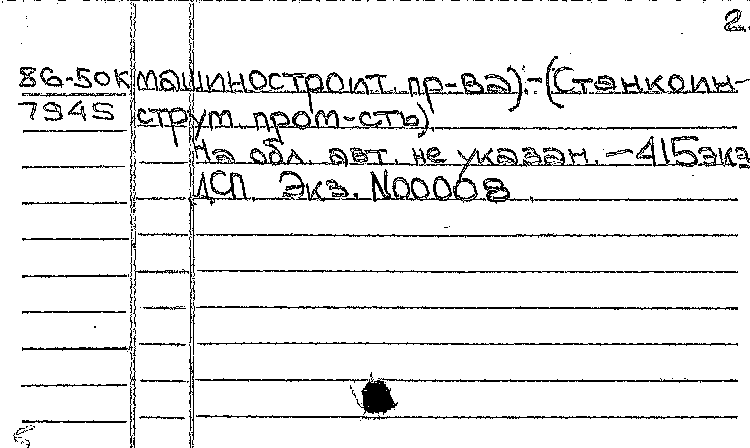 2.
86-50к машиностроит. пр-ва).-(Станкоин-
7945 струм. пром-сть)
На обл. авт. не указан. - 415 экз
ДСП. Экз. N00008